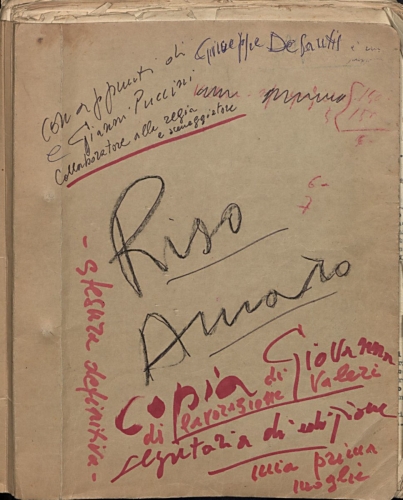 con appunti di Giuseppe De Santis
e Gianni Puccini
collaboratore alla regia
e sceneggiatore
Riso
Amaro
- stesura definitiva -
Copia di Giovanna
di lavorazione Valeri
segretaria di edizione
mia prima
moglie